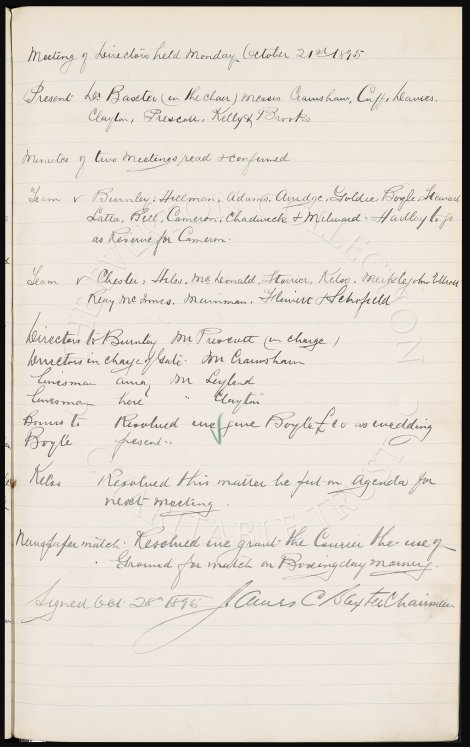 Meeting of Directors held Monday, October 21st 1895
Present Dr Baxter (in the chair) Messrs Crawshaw, Cuff, Davies.
Clayton, Prescott, Kelly & Brooks
Minutes of two Meetings, read & confirmed
Team v Burnley: Hillman, Adams, Arridge, Goldie, Boyle, Steward
Latta, Bell, Cameron, Chadwick & Milward. Hartley to go
as Reserve for Cameron.
Team v Chester: Hiles, McDonald, Storrier, Kelso, Meiklejohn, Elliott
Reay, McInnes, Murrman, Flewitt & Schofield
Directors to Burnley Mr Prescott (in charge)
Directors in charge of Gate. Mr Crawshaw
Linesman away Mr Leyland
Linesman here " Clayton
Bonus to Resolved we give Boyle £10 as wedding
Boyle present.
Kelso Resolved this matter be put on agenda for
next meeting.
Newspaper match. Resolved we grant the Courier the use of
Ground for match on Boxing day morning.
Signed Oct 28th 1895 James C Baxter Chairman
EVERTON COLLECTION
CHARITABLE TRUST